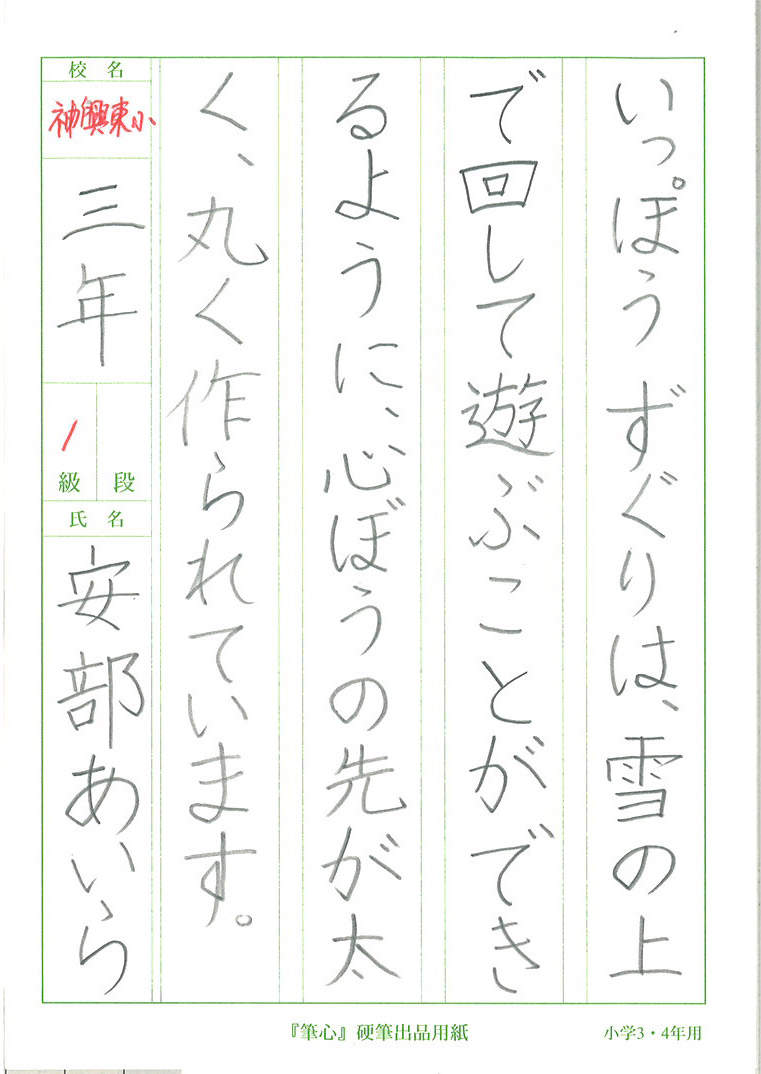 いっぽうずぐりは、雪の上
で回して遊ぶことができ
るように、心ぼうの先が太
く、丸く作られています。
校名
神興東小
三年
1
級 段
氏名
安部あいら
『筆心』硬筆出品用紙
小学3・4年用